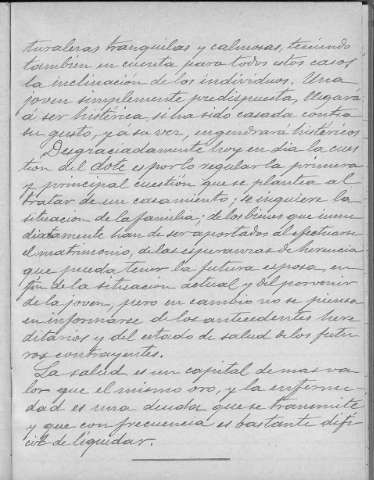 turaleras tranquilas y calmosas, teniendo
tambien en cuenta para todos estos casos
la inclinación de los individuos. Una
joven simplemente predispuesta, llegará
á ser histérica si ha sido casada contra
su gusto, y a su vez, engendrará histéricos
Desgraciadamente hoy en dia la cues
tion del dote es por lo regular la primera
y principal cuestión que se plantea al
tratar de un casamiento; se inquiere la
situacion de la familia; de los bienes que inme
diatamente han de ser aportados al efectuarse
el matrimonio, de las esperanzas de herencia
que pueda tener la futura esposa, en
fin de la situacion actual y del porvenir
de la joven, pero en cambio no se piensa
en informarse de los antecedentes here
ditarios y del estado de salud de los futu
ros contrayentes.
La salud es un capital de mas va
lor que el mismo oro, y la enferme
dad es una deuda que se transmite
y que con frecuencia es bastante difi
cil de liquidar.